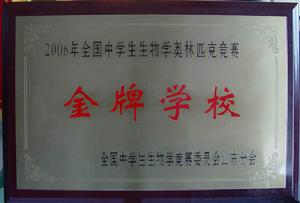 2006年全国中学生生物学奥林匹克竞赛
金牌学校
全国中学生生物学竞赛委员会山东分会